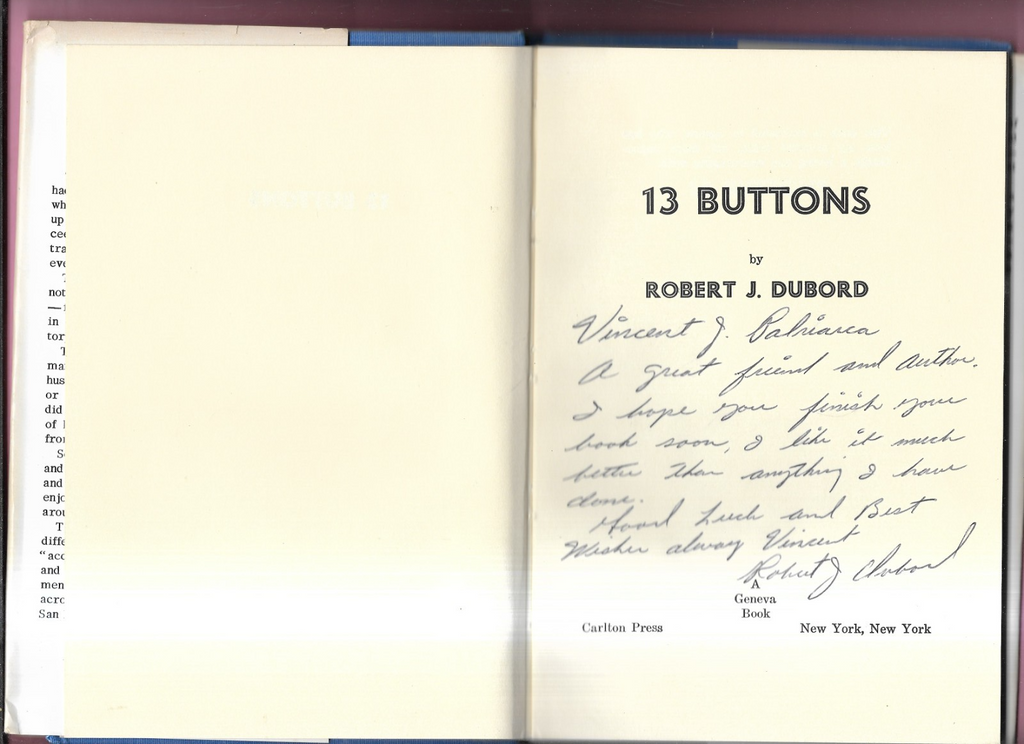 had
wh
up
cee
tra
eve
T
not
in
tor
T
ma
hus
or
did
of
fro
S
and
and
enjo
arou
T
diffe
"acc
and
men
acro
San
13 BUTTONS
by
ROBERT J. DUBORD
Vincent J.
A great friend and author.
I hope you finish your
book soon, I like it much
better than anything I have
done.
Good Luck and Best
Wishes always Vincent
Robert J Dubord
A
Geneva
Book
Carlton Press New York, New York